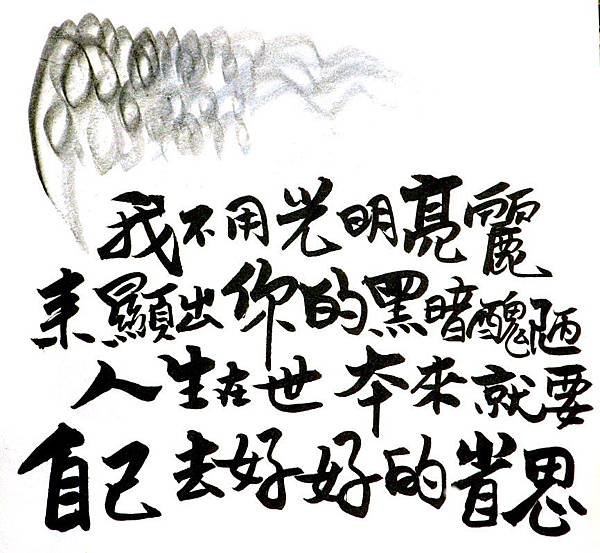 我不用光明亮麗
來顯出你的黑暗醜陋
人生在世本來就要
自己去好好的省思